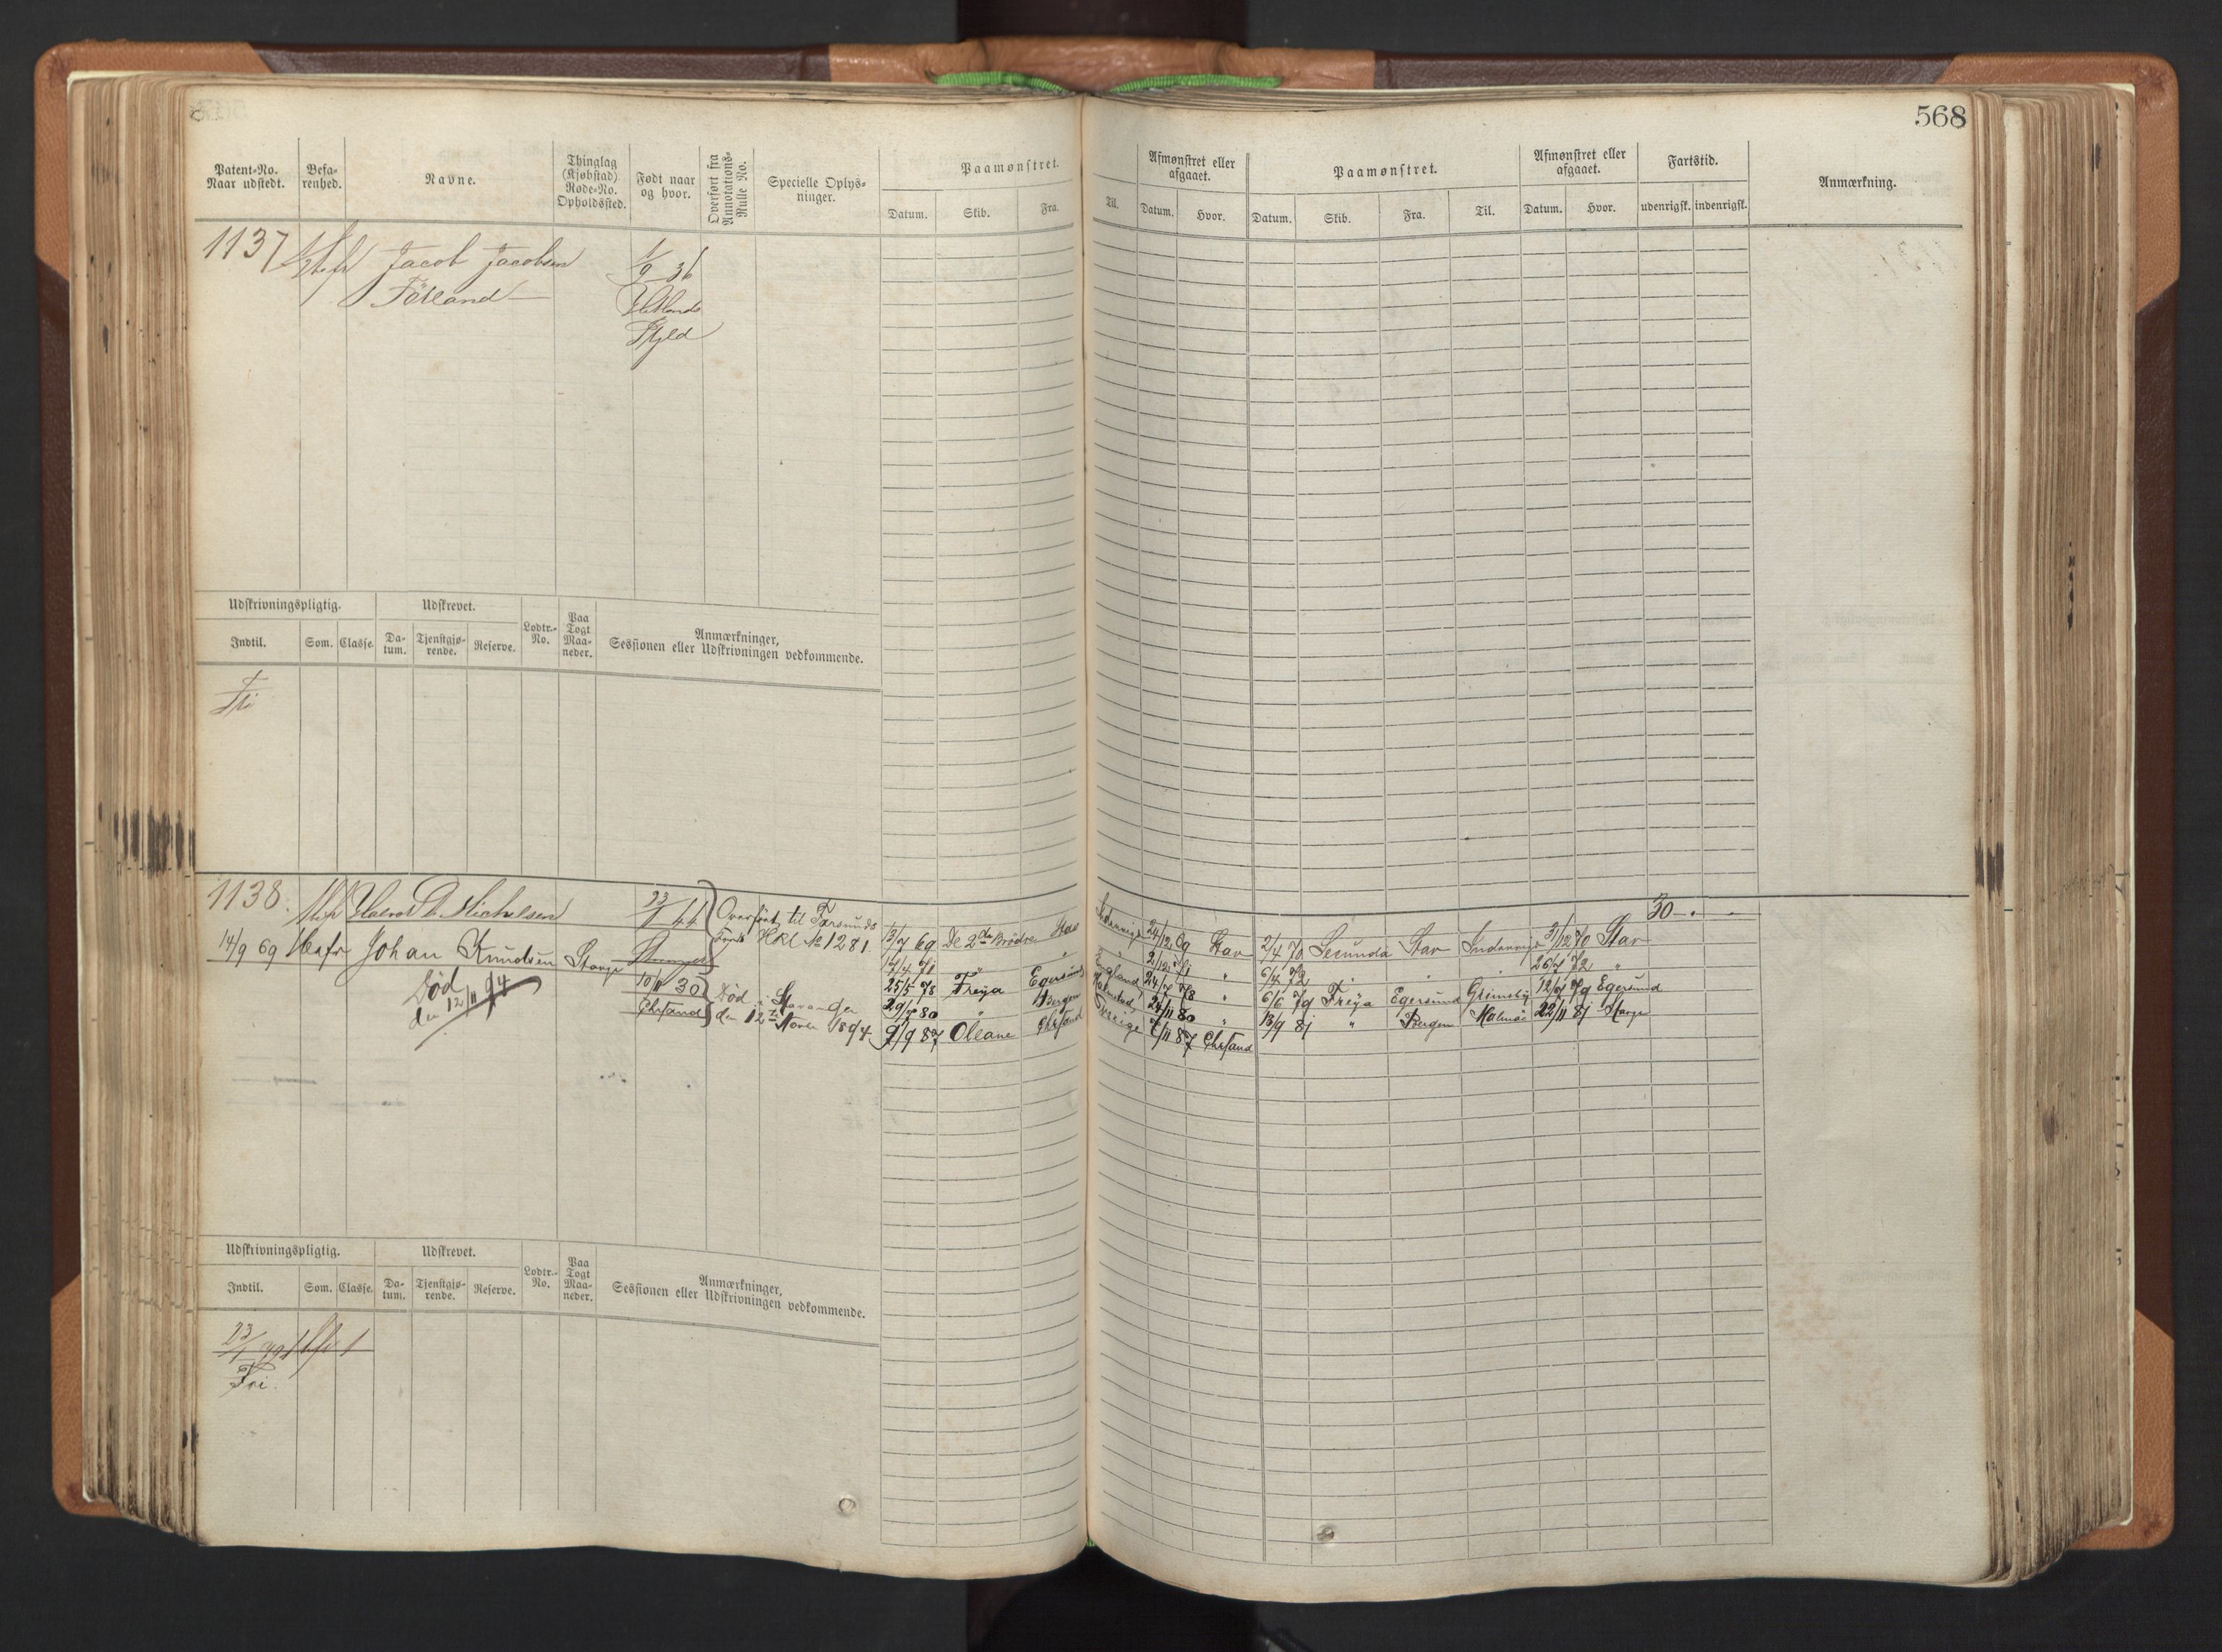 568
Patent-No. Naar udstedt.
Befa-renhed.
Navne.
Thinglag (Kjøbstad) Rode-No. Opholdssted.
Født naar og hvor.
Overført fra Annotations-Rulle No.
Specielle Oplys-ninger.
Paamønstret.
Datum. Skib. Fra. Til.
Afmønstret eller afgaaet.
Datum. Hvor.
Paamønstret.
Datum. Skib. Fra. Til.
Afmønstret eller afgaaet.
Datum. Hvor.
Fartstid.
udenrigsk. indenrigsk.
Anmærkning.
1137 Jacob Jacobsen 1/9 36
Hetlands
Skjld
Udskrivningspligtig. Udskrevet. Lodtr.-No. Paa Togt Maa-neder. Anmærkninger, Sessionen eller Udskrivningen vedkommende.
Indtil. Som. Classe. Da-tum. Tjenstgjø-rende. Reserve.
Fri
1138. Michelsen 23/1 44 Overført til Farsunds
HRl No 1281.
30
14/9 69 Johan Knudsen Stavgr
10/11 30
Chrsand
Død
den 12/11 94
Død i Stavanger
den 12te Novbr 1894.
13/7 69 De 2de Brødre Stav Indenrigs 24/12 69 Stav 2/4 70 Secunda Stav Indenrigs 31/12 70 Stav
17/4 71 " " " 2/12 71 " 6/4 72 " " " 26/7 72 "
25/5 78 Freya Egersund England 24/7 78 " 6/6 79 Freya Egersund Grimsby 12/7 79 Egersund
29/7 80 " Bergen Halmstad 24/11 80 " 13/9 81 " Bergen Malmø 22/11 81 Stavgr
9/9 87 Oleane Chrsand Sverige 7/11 87 Chrsand
Udskrivningspligtig. Udskrevet. Lodtr.-No. Paa Togt Maa-neder. Anmærkninger, Sessionen eller Udskrivningen vedkommende.
Indtil. Som. Classe. Da-tum. Tjenstgjø-rende. Reserve.
23/1
Fri.